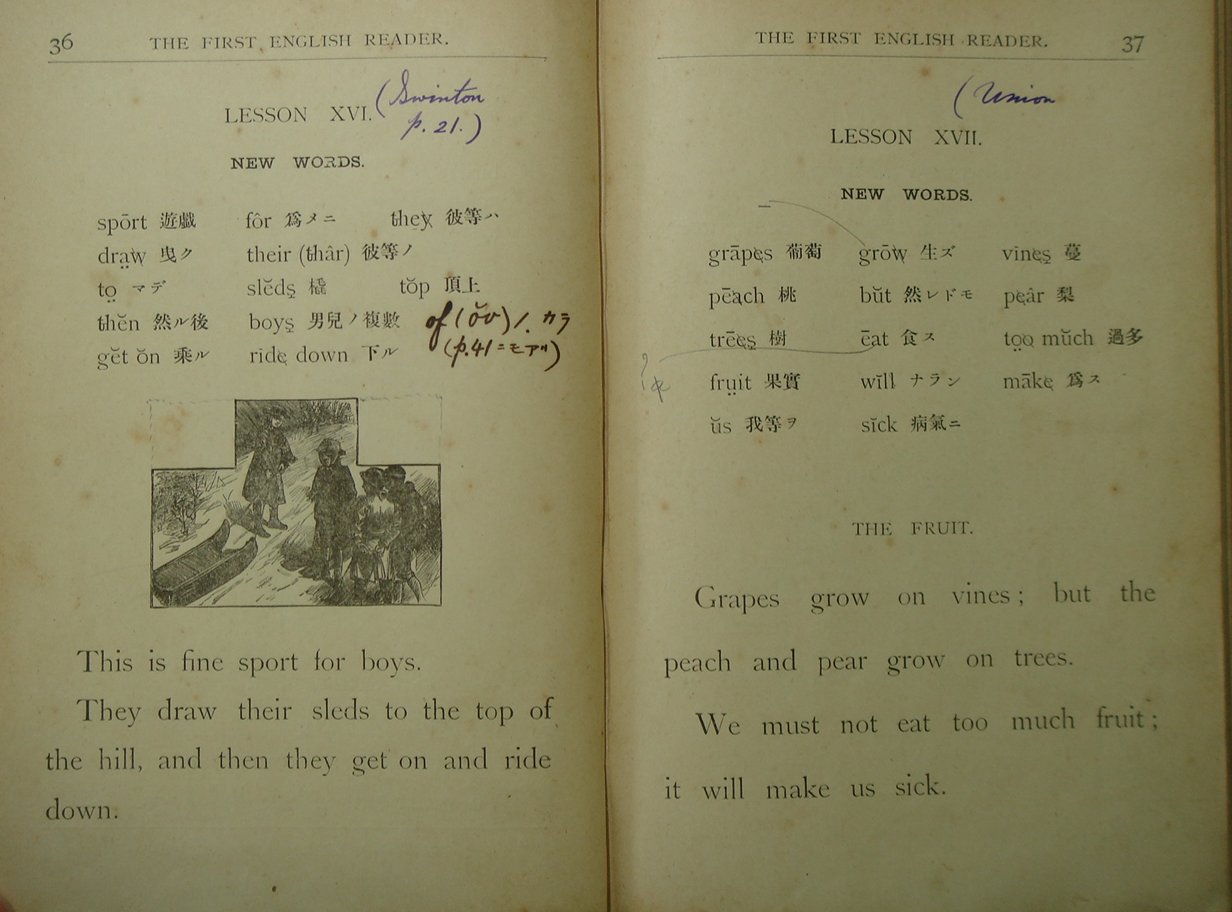 36
THE FIRST ENGLISH READER.
LESSON XVI.
(Swinton
p. 21.)
NEW WORDS.
spōrt 遊戲 fôr 爲メニ they 彼等ハ
draw 曳ク their (thâr) 彼等ノ
to マデ slĕds 橇 tŏp 頂上
thĕn 然ル後 boys 男兒ノ複數
gĕt ŏn 乘ル rīde down 下ル
of (ŏv) ノ. カラ
(p.41ニモアリ)
This is fine sport for boys.
They draw their sleds to the top of
the hill, and then they get on and ride
down.
THE FIRST ENGLISH READER.
37
(Union
LESSON XVII.
NEW WORDS.
grāpes 葡萄 grōw 生ズ vines 蔓
pēach 桃 bŭt 然レドモ peâr 梨
trēes 樹 ēat 食ス too mŭch 過多
fruit 果實 wĭll ナラン māke 爲ス
ŭs 我等ヲ sĭck 病氣ニ
THE FRUIT.
Grapes grow on vines; but the
peach and pear grow on trees.
We must not eat too much fruit;
it will make us sick.